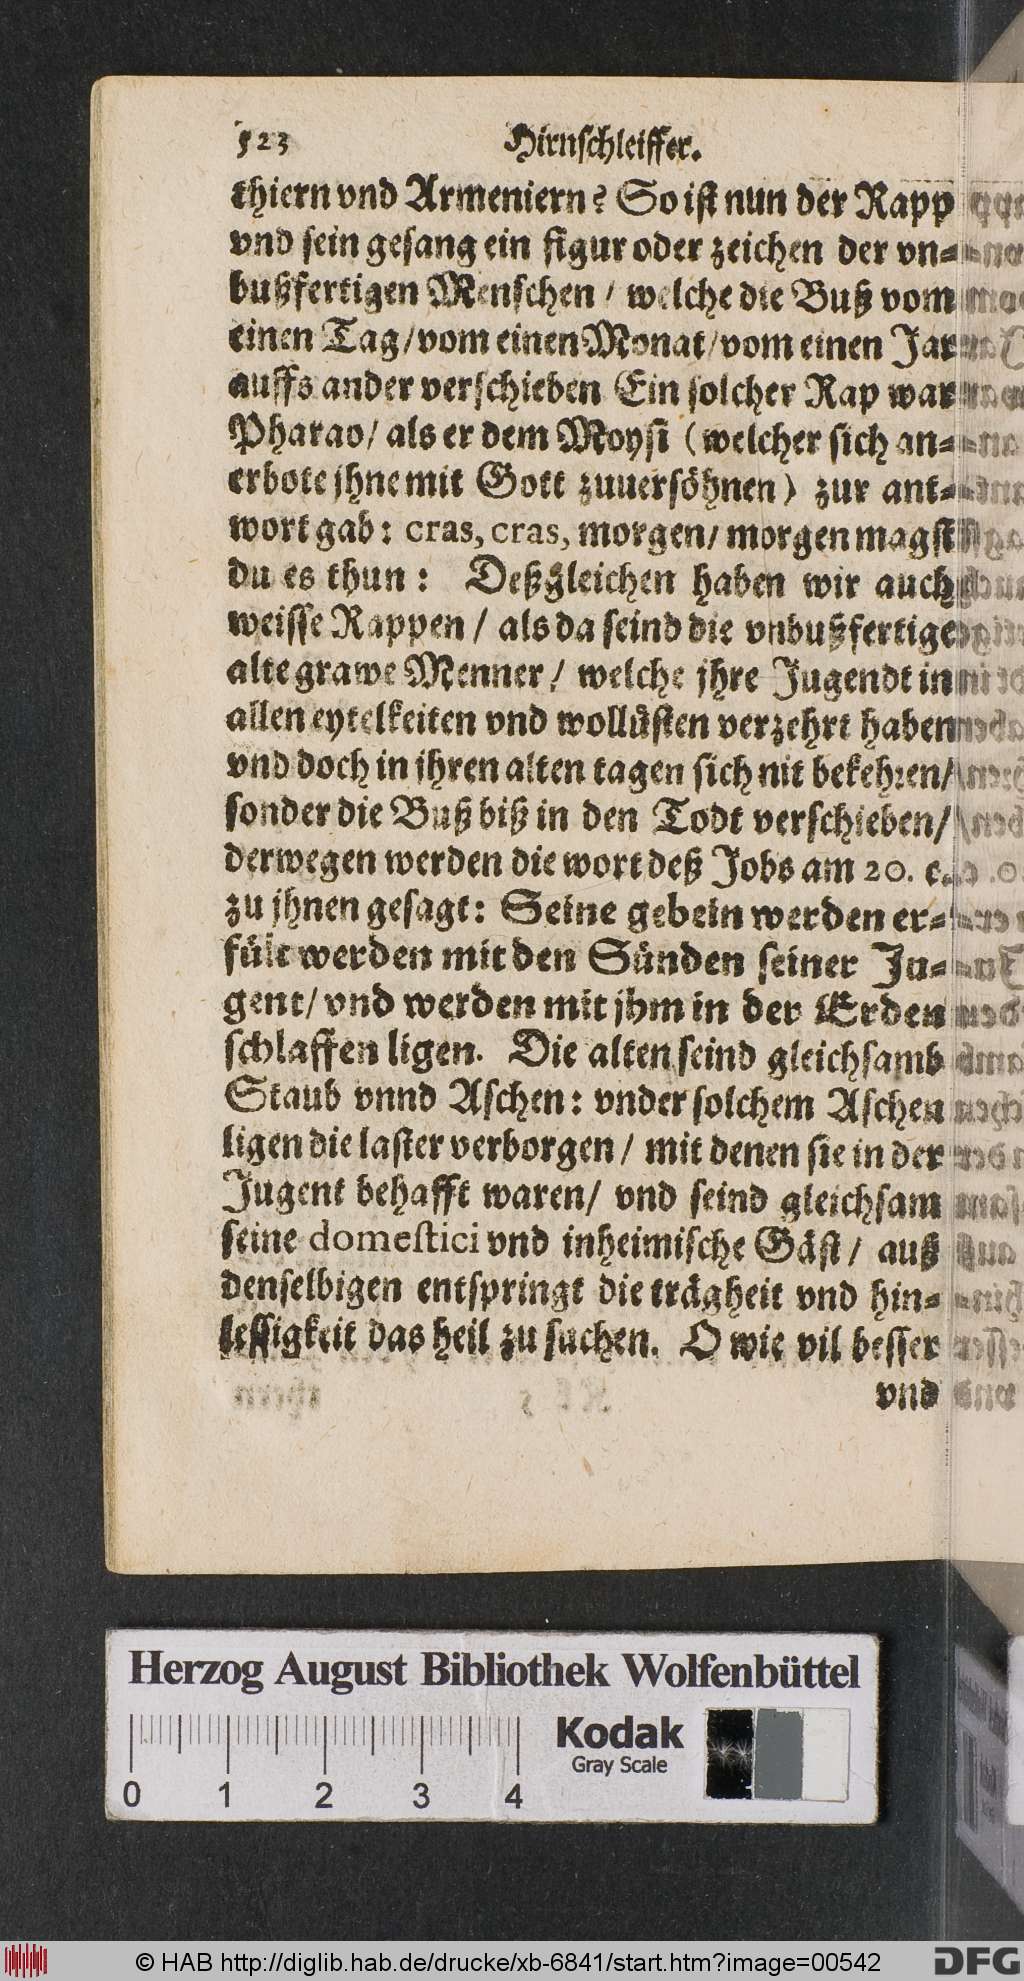 523 Hirnschleiffer.
thiern vnd Armeniern? So ist nun der Rapp
vnd sein gesang ein figur oder zeichen der vn-
bußfertigen Menschen / welche die Buß vom
einen Tag/ vom einen Monat/ vom einen Jar
auffs ander verschieben Ein solcher Rap war
Pharao/ als er dem Moysi (welcher sich an-
erbote jhne mit Gott zuuersöhnen) zur ant-
wort gab: cras, cras, morgen/ morgen magst
du es thun: Deßgleichen haben wir auch
weisse Rappen / als da seind die vnbußfertige
alte grawe Menner / welche jhre Jugendt in
allen eytelkeiten vnd wollüsten verzehrt haben
vnd doch in jhren alten tagen sich nit bekehren/
sonder die Buß biß in den Todt verschieben/
derwegen werden die wort deß Jobs am 20. c.
zu jhnen gesagt: Seine gebein werden er-
fült werden mit den Sünden seiner Ju-
gent/ vnd werden mit jhm in der Erden
schlaffen ligen. Die alten seind gleichsamb
Staub vnnd Aschen: vnder solchem Aschen
ligen die laster verborgen / mit denen sie in der
Jugent behafft waren/ vnd seind gleichsam
seine domestici vnd inheimische Gäst / auß
denselbigen entspringt die trägheit vnd hin-
lessigkeit das heil zu suchen. O wie vil besser
vnd
Herzog August Bibliothek Wolfenbüttel
Kodak
Gray Scale
0 1 2 3 4
© HAB http://diglib.hab.de/drucke/xb-6841/start.htm?image=00542
DFG